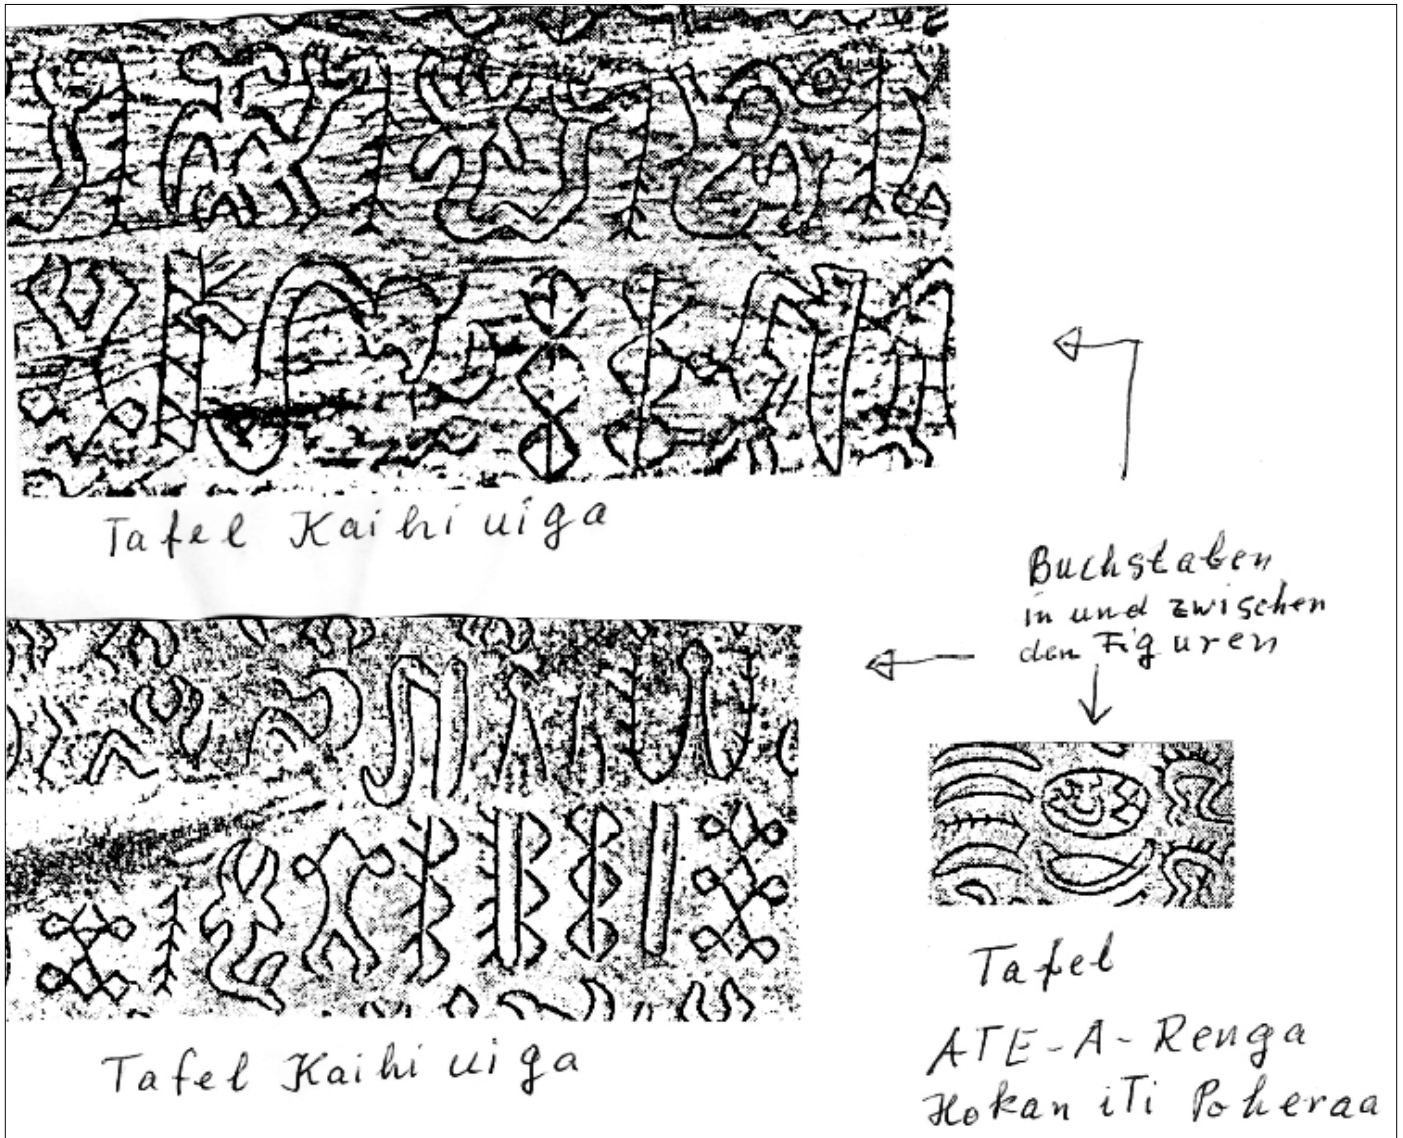 Tafel Kaihi uiga
Buchstaben
in und zwischen
den Figuren
Tafel Kaihi uiga
Tafel
ATE-A-Renga
Hokan iTi Poheraa